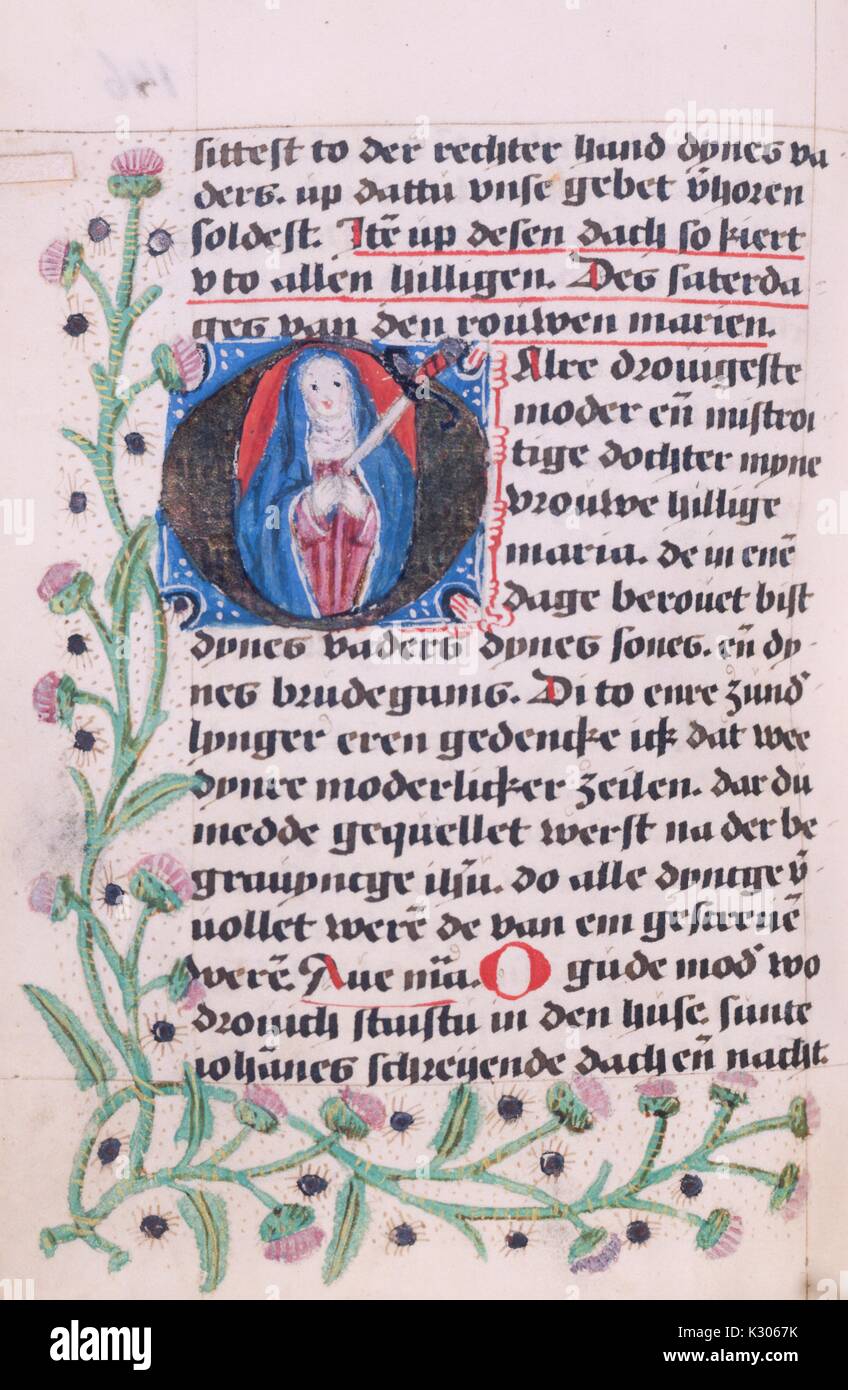 sittest to der rechter hand dynes va
ders. up dattu vnse gebet v̄horen
soldest. Itē up desen dach so kiert
v to allen hilligen. Des saterda
ges van den rouwen marien.
O Alre drouigeste
moder en̄ mistroi
tige dochter myne
vrouwe hillige
maria. de in enē
dage berouet bist
dynes vaders dynes sones. en̄ dy
nes brudegums. Di to enre zund
lynger eren gedencke ick dat wee
dynre moderlicker zeilen. dar du
medde gequellet werst na der be
grauyncge ih̄u. do alle dyncge v̄
uollet werē de van em gescreuē
werē. Aue m̄a. O gude mod wo
drouich stuistu in den huse. sunte
ioh̄anes schreyende dach en̄ nacht.
alamy stock photo
K3067K
www.alamy.com